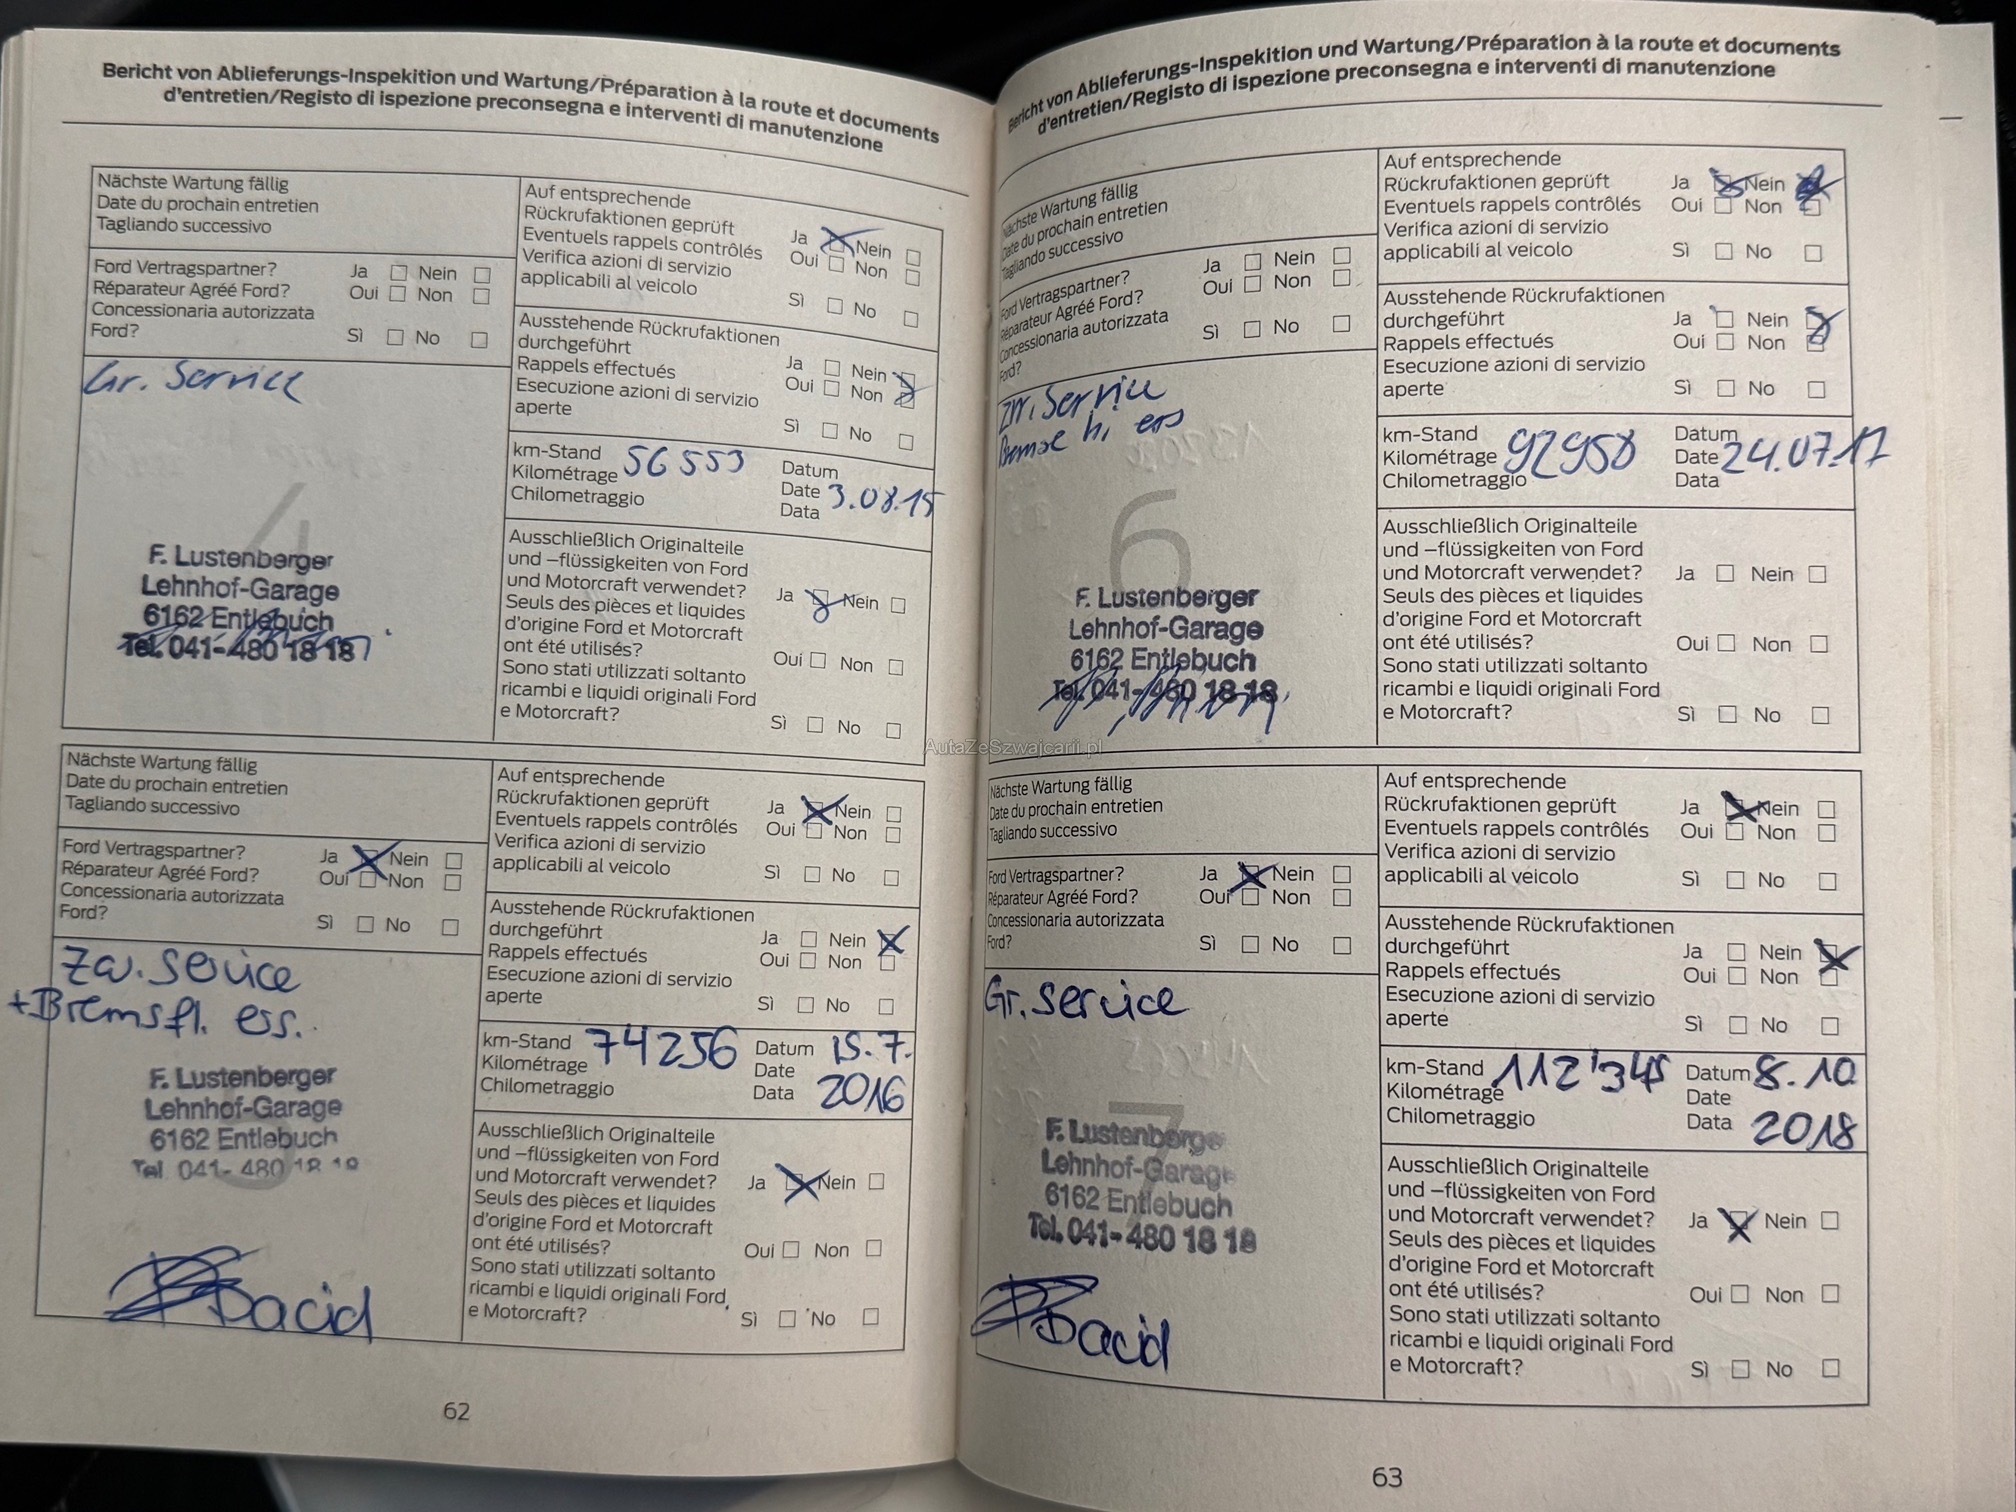 Bericht von Ablieferungs-Inspekition und Wartung/Préparation à la route et documents
d'entretien/Registo di ispezione preconsegna e interventi di manutenzione
Nächste Wartung fällig
Date du prochain entretien
Tagliando successivo
Ford Vertragspartner? Ja Nein
Réparateur Agréé Ford? Oui Non
Concessionaria autorizzata
Ford? Sì No
Gr. Service
4
F. Lustenberger
Lehnhof-Garage
6162 Entlebuch
Tel. 041-480 18 18
Auf entsprechende
Rückrufaktionen geprüft Ja Nein
Eventuels rappels contrôlés Oui Non
Verifica azioni di servizio
applicabili al veicolo Sì No
Ausstehende Rückrufaktionen
durchgeführt Ja Nein
Rappels effectués Oui Non
Esecuzione azioni di servizio
aperte Sì No
km-Stand 56553 Datum
Kilométrage Date 3.08.15
Chilometraggio Data
Ausschließlich Originalteile
und –flüssigkeiten von Ford
und Motorcraft verwendet? Ja Nein
Seuls des pièces et liquides
d'origine Ford et Motorcraft
ont été utilisés? Oui Non
Sono stati utilizzati soltanto
ricambi e liquidi originali Ford
e Motorcraft? Sì No
Nächste Wartung fällig
Date du prochain entretien
Tagliando successivo
Ford Vertragspartner? Ja Nein
Réparateur Agréé Ford? Oui Non
Concessionaria autorizzata
Ford? Sì No
Zw. Service
+Bremsfl. ers.
5
F. Lustenberger
Lehnhof-Garage
6162 Entlebuch
Tel. 041-480 18 18
Auf entsprechende
Rückrufaktionen geprüft Ja Nein
Eventuels rappels contrôlés Oui Non
Verifica azioni di servizio
applicabili al veicolo Sì No
Ausstehende Rückrufaktionen
durchgeführt Ja Nein
Rappels effectués Oui Non
Esecuzione azioni di servizio
aperte Sì No
km-Stand 74256 Datum 15.7.
Kilométrage Date
Chilometraggio Data 2016
Ausschließlich Originalteile
und –flüssigkeiten von Ford
und Motorcraft verwendet? Ja Nein
Seuls des pièces et liquides
d'origine Ford et Motorcraft
ont été utilisés? Oui Non
Sono stati utilizzati soltanto
ricambi e liquidi originali Ford
e Motorcraft? Sì No
62
Bericht von Ablieferungs-Inspekition und Wartung/Préparation à la route et documents
d'entretien/Registo di ispezione preconsegna e interventi di manutenzione
Nächste Wartung fällig
Date du prochain entretien
Tagliando successivo
Ford Vertragspartner? Ja Nein
Réparateur Agréé Ford? Oui Non
Concessionaria autorizzata
Ford? Sì No
Zw. Service
Bremse hi ers
6
F. Lustenberger
Lehnhof-Garage
6162 Entlebuch
Tel. 041-480 18 18
Auf entsprechende
Rückrufaktionen geprüft Ja Nein
Eventuels rappels contrôlés Oui Non
Verifica azioni di servizio
applicabili al veicolo Sì No
Ausstehende Rückrufaktionen
durchgeführt Ja Nein
Rappels effectués Oui Non
Esecuzione azioni di servizio
aperte Sì No
km-Stand 92950 Datum
Kilométrage Date 24.07.17
Chilometraggio Data
Ausschließlich Originalteile
und –flüssigkeiten von Ford
und Motorcraft verwendet? Ja Nein
Seuls des pièces et liquides
d'origine Ford et Motorcraft
ont été utilisés? Oui Non
Sono stati utilizzati soltanto
ricambi e liquidi originali Ford
e Motorcraft? Sì No
AutaZeSzwajcarii.pl
Nächste Wartung fällig
Date du prochain entretien
Tagliando successivo
Ford Vertragspartner? Ja Nein
Réparateur Agréé Ford? Oui Non
Concessionaria autorizzata
Ford? Sì No
Gr. Service
7
F. Lustenberger
Lehnhof-Garage
6162 Entlebuch
Tel. 041-480 18 18
Auf entsprechende
Rückrufaktionen geprüft Ja Nein
Eventuels rappels contrôlés Oui Non
Verifica azioni di servizio
applicabili al veicolo Sì No
Ausstehende Rückrufaktionen
durchgeführt Ja Nein
Rappels effectués Oui Non
Esecuzione azioni di servizio
aperte Sì No
km-Stand 112'345 Datum 8.10
Kilométrage Date
Chilometraggio Data 2018
Ausschließlich Originalteile
und –flüssigkeiten von Ford
und Motorcraft verwendet? Ja Nein
Seuls des pièces et liquides
d'origine Ford et Motorcraft
ont été utilisés? Oui Non
Sono stati utilizzati soltanto
ricambi e liquidi originali Ford
e Motorcraft? Sì No
63